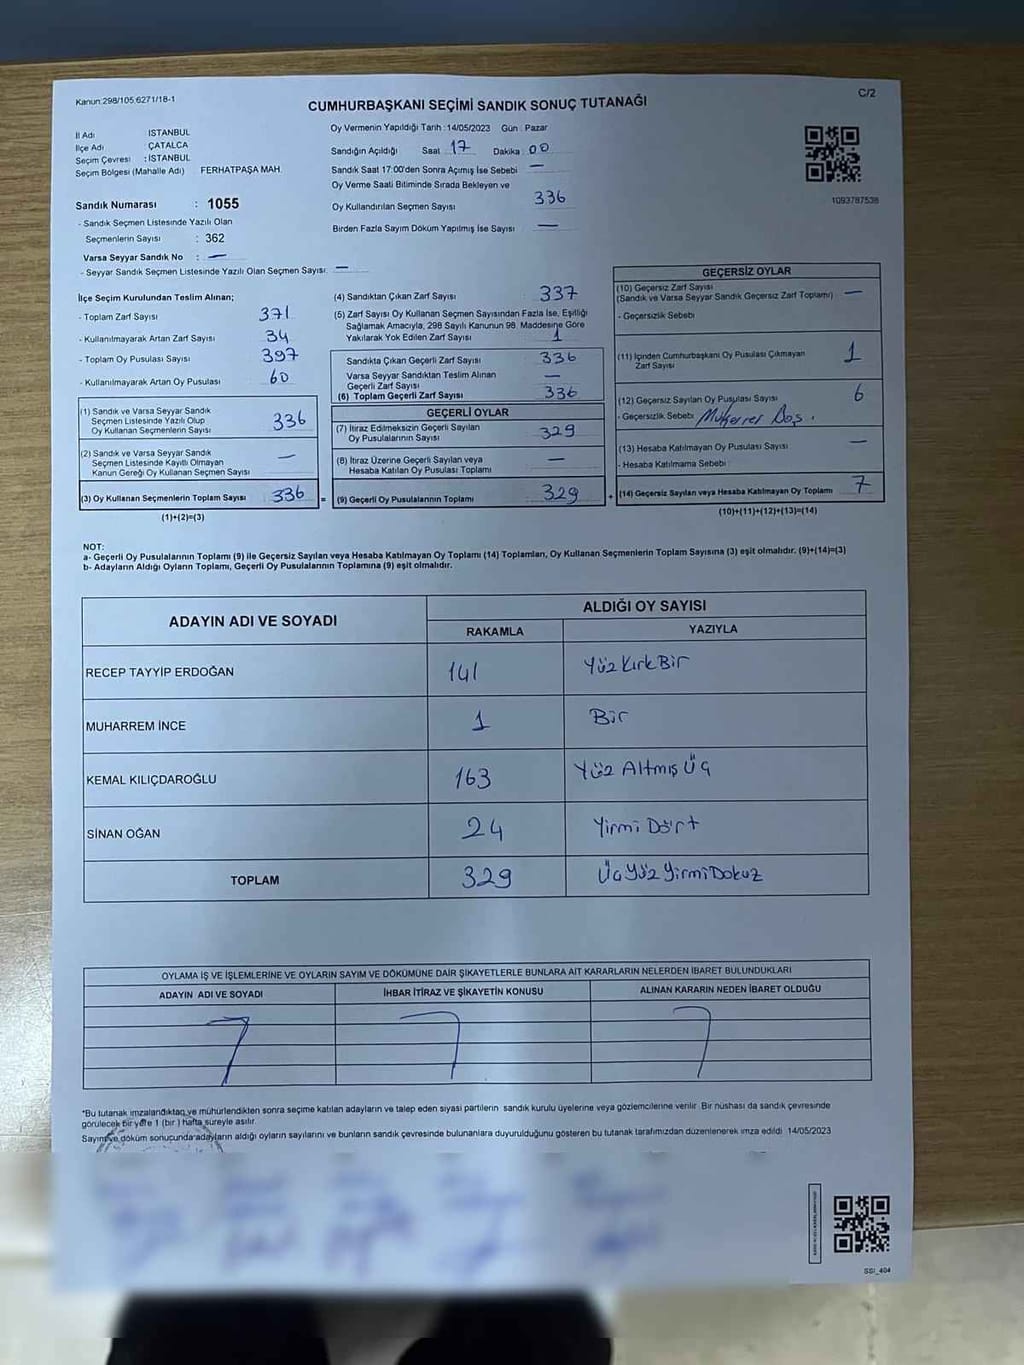 Kanun:298/105:6271/18-1
C/2
CUMHURBAŞKANI SEÇİMİ SANDIK SONUÇ TUTANAĞI
İl Adı İSTANBUL
İlçe Adı ÇATALCA
Seçim Çevresi : İSTANBUL
Seçim Bölgesi (Mahalle Adı) FERHATPAŞA MAH.
Sandık Numarası : 1055
- Sandık Seçmen Listesinde Yazılı Olan
Seçmenlerin Sayısı : 362
Varsa Seyyar Sandık No : —
- Seyyar Sandık Seçmen Listesinde Yazılı Olan Seçmen Sayısı: —
Oy Vermenin Yapıldığı Tarih : 14/05/2023 Gün : Pazar
Sandığın Açıldığı Saat 17 Dakika 00
Sandık Saat 17:00'den Sonra Açımış İse Sebebi —
Oy Verme Saati Bitiminde Sırada Bekleyen ve
Oy Kullandırılan Seçmen Sayısı 336
Birden Fazla Sayım Döküm Yapılmış İse Sayısı —
1093787538
İlçe Seçim Kurulundan Teslim Alınan;
- Toplam Zarf Sayısı 371
- Kullanılmayarak Artan Zarf Sayısı 34
- Toplam Oy Pusulası Sayısı 397
- Kullanılmayarak Artan Oy Pusulası 60
(1) Sandık ve Varsa Seyyar Sandık
Seçmen Listesinde Yazılı Olup
Oy Kullanan Seçmenlerin Sayısı 336
(2) Sandık ve Varsa Seyyar Sandık
Seçmen Listesinde Kayıtlı Olmayan
Kanun Gereği Oy Kullanan Seçmen Sayısı —
(3) Oy Kullanan Seçmenlerin Toplam Sayısı 336 =
(1)+(2)=(3)
(4) Sandıktan Çıkan Zarf Sayısı : 337
(5) Zarf Sayısı Oy Kullanan Seçmen Sayısından Fazla İse, Eşitliği
Sağlamak Amacıyla, 298 Sayılı Kanunun 98. Maddesine Göre
Yakılarak Yok Edilen Zarf Sayısı 1
Sandıkta Çıkan Geçerli Zarf Sayısı 336
Varsa Seyyar Sandıktan Teslim Alınan
Geçerli Zarf Sayısı —
(6) Toplam Geçerli Zarf Sayısı 336
GEÇERLİ OYLAR
(7) İtiraz Edilmeksizin Geçerli Sayılan
Oy Pusulalarının Sayısı 329
(8) İtiraz Üzerine Geçerli Sayılan veya
Hesaba Katılan Oy Pusulası Toplamı —
(9) Geçerli Oy Pusulalarının Toplamı 329 +
GEÇERSİZ OYLAR
(10) Geçersiz Zarf Sayısı
(Sandık ve Varsa Seyyar Sandık Geçersiz Zarf Toplamı) —
- Geçersizlik Sebebi
(11) İçinden Cumhurbaşkanı Oy Pusulası Çıkmayan
Zarf Sayısı 1
(12) Geçersiz Sayılan Oy Pusulası Sayısı 6
- Geçersizlik Sebebi Mükerrer Boş.
(13) Hesaba Katılmayan Oy Pusulası Sayısı —
- Hesaba Katılmama Sebebi
(14) Geçersiz Sayılan veya Hesaba Katılmayan Oy Toplamı 7
(10)+(11)+(12)+(13)=(14)
NOT:
a- Geçerli Oy Pusulalarının Toplamı (9) ile Geçersiz Sayılan veya Hesaba Katılmayan Oy Toplamı (14) Toplamları, Oy Kullanan Seçmenlerin Toplam Sayısına (3) eşit olmalıdır. (9)+(14)=(3)
b- Adayların Aldığı Oyların Toplamı, Geçerli Oy Pusulalarının Toplamına (9) eşit olmalıdır.
ADAYIN ADI VE SOYADI ALDIĞI OY SAYISI
RAKAMLA YAZIYLA
RECEP TAYYİP ERDOĞAN 141 Yüz Kırk Bir
MUHARREM İNCE 1 Bir
KEMAL KILIÇDAROĞLU 163 Yüz Altmış Üç
SİNAN OĞAN 24 Yirmi Dört
TOPLAM 329 Üç Yüz Yirmi Dokuz
OYLAMA İŞ VE İŞLEMLERİNE VE OYLARIN SAYIM VE DÖKÜMÜNE DAİR ŞİKAYETLERLE BUNLARA AİT KARARLARIN NELERDEN İBARET BULUNDUKLARI
ADAYIN ADI VE SOYADI İHBAR İTİRAZ VE ŞİKAYETİN KONUSU ALINAN KARARIN NEDEN İBARET OLDUĞU
*Bu tutanak imzalandıktan ve mühürlendikten sonra seçime katılan adayların ve talep eden siyasi partilerin sandık kurulu üyelerine veya gözlemcilerine verilir. Bir nüshası da sandık çevresinde
görülecek bir yere 1 (bir) hafta süreyle asılır.
Sayım ve döküm sonucunda adayların aldığı oyların sayılarını ve bunların sandık çevresinde bulunanlara duyurulduğunu gösteren bu tutanak tarafımızdan düzenlenerek imza edildi. 14/05/2023
SSI_404